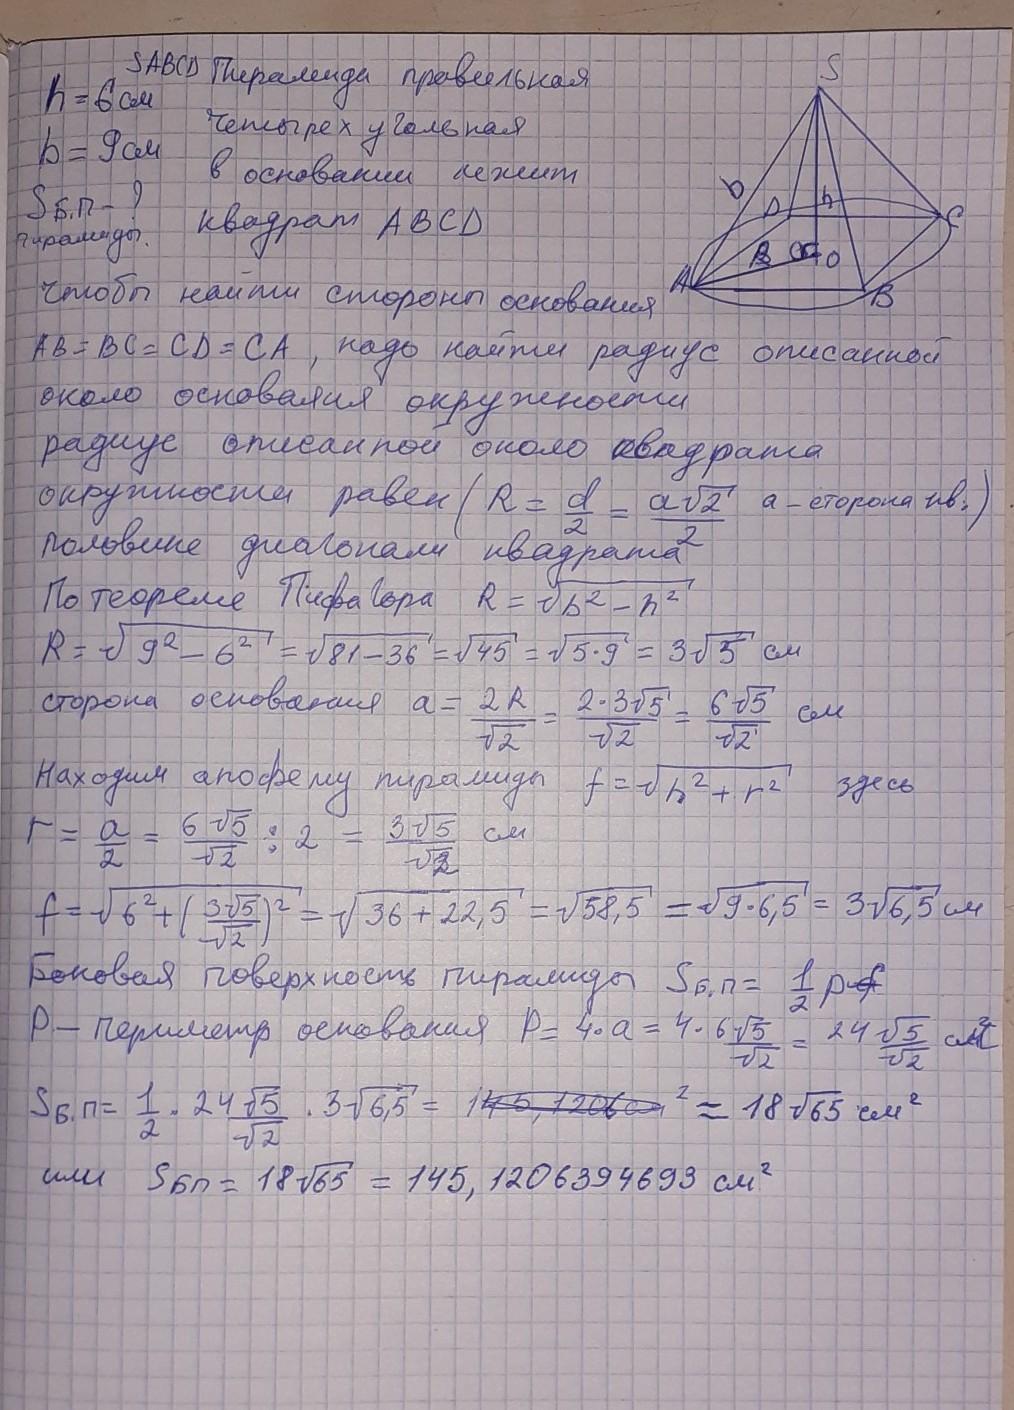 SABCD Пирамида правильная
h = 6 см
четырехугольная
b = 9 см
в основании лежит
Sб.п - ?
пирамиды.
квадрат ABCD
S
b
h
D
C
R
O
A
B
Чтобы найти стороны основания
AB = BC = CD = CA, надо найти радиус описанной
около основания окружности
радиус описанной около квадрата
окружности равен (R = d/2 = a√2/2 a – сторона кв.)
половине диагонали квадрата
По теореме Пифагора R = √(b² – h²)
R = √(9² – 6²) = √(81 – 36) = √45 = √(5·9) = 3√5 см
сторона основания a = 2R/√2 = 2·3√5/√2 = 6√5/√2 см
Находим апофему пирамиды f = √(h² + r²) здесь
r = a/2 = 6√5/√2 : 2 = 3√5/√2 см
f = √(6² + (3√5/√2)²) = √(36 + 22,5) = √58,5 = √(9·6,5) = 3√6,5 см
Боковая поверхность пирамиды Sб.п = 1/2 p f
P – периметр основания P = 4·a = 4·6√5/√2 = 24√5/√2 см
Sб.п = 1/2 · 24√5/√2 · 3√6,5 = = 18√65 см²
или Sбп = 18√65 = 145,1206394693 см²